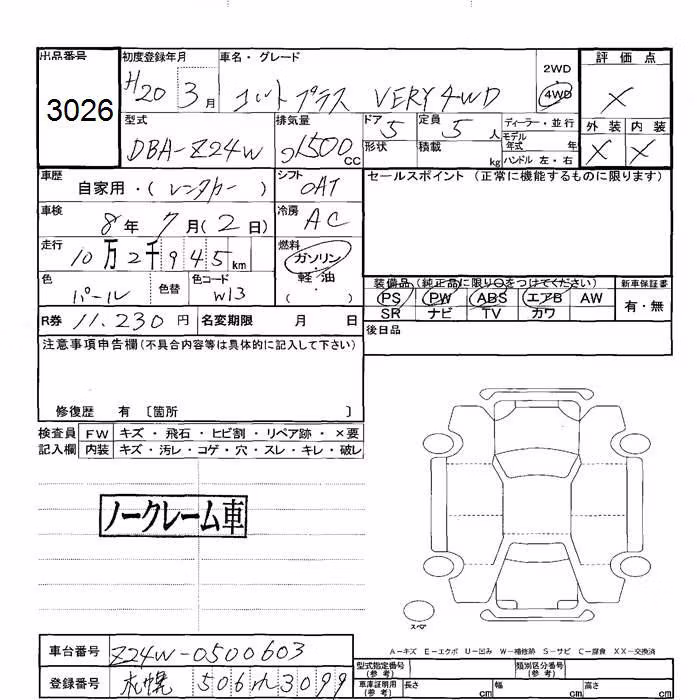 出品番号 初度登録年月 車名・グレード 評価点
3026 H20 3月 コルトプラス VERY 4WD 2WD 4WD X
型式 排気量 ドア 定員 ディーラー・並行 外装 内装
DBA-Z24W 1500cc 5 5人 モデル年式 年 X X
形状 積載 kg ハンドル 左・右
車歴 自家用・(レンタカー) シフト OAT セールスポイント (正常に機能するものに限ります)
車検 8年 7月(2日) 冷房 AC
走行 10万2千945km 燃料 ガソリン・軽・油・( )
色 パール 色替 色コード W13
装備品(純正品に限り○をつけてください) 新車保証書
PS PW ABS エアB AW 有・無
SR ナビ TV カワ
R券 11.230円 名変期限 月 日 後日品
注意事項申告欄(不具合内容等は具体的に記入して下さい)
修復歴 有 〔箇所 〕
検査員 FW キズ・飛石・ヒビ割・リペア跡・×要
記入欄 内装 キズ・汚レ・コゲ・穴・スレ・キレ・破レ
ノークレーム車
スペア
A-キズ E-エクボ U-凹み W-補修跡 S-サビ C-腐食 XX-交換済
車台番号 Z24W-0500603
型式指定番号(参考) 類別区分番号(参考)
登録番号 札幌 506 3099
車庫証明用(参考) 長さ cm 幅 cm 高さ cm